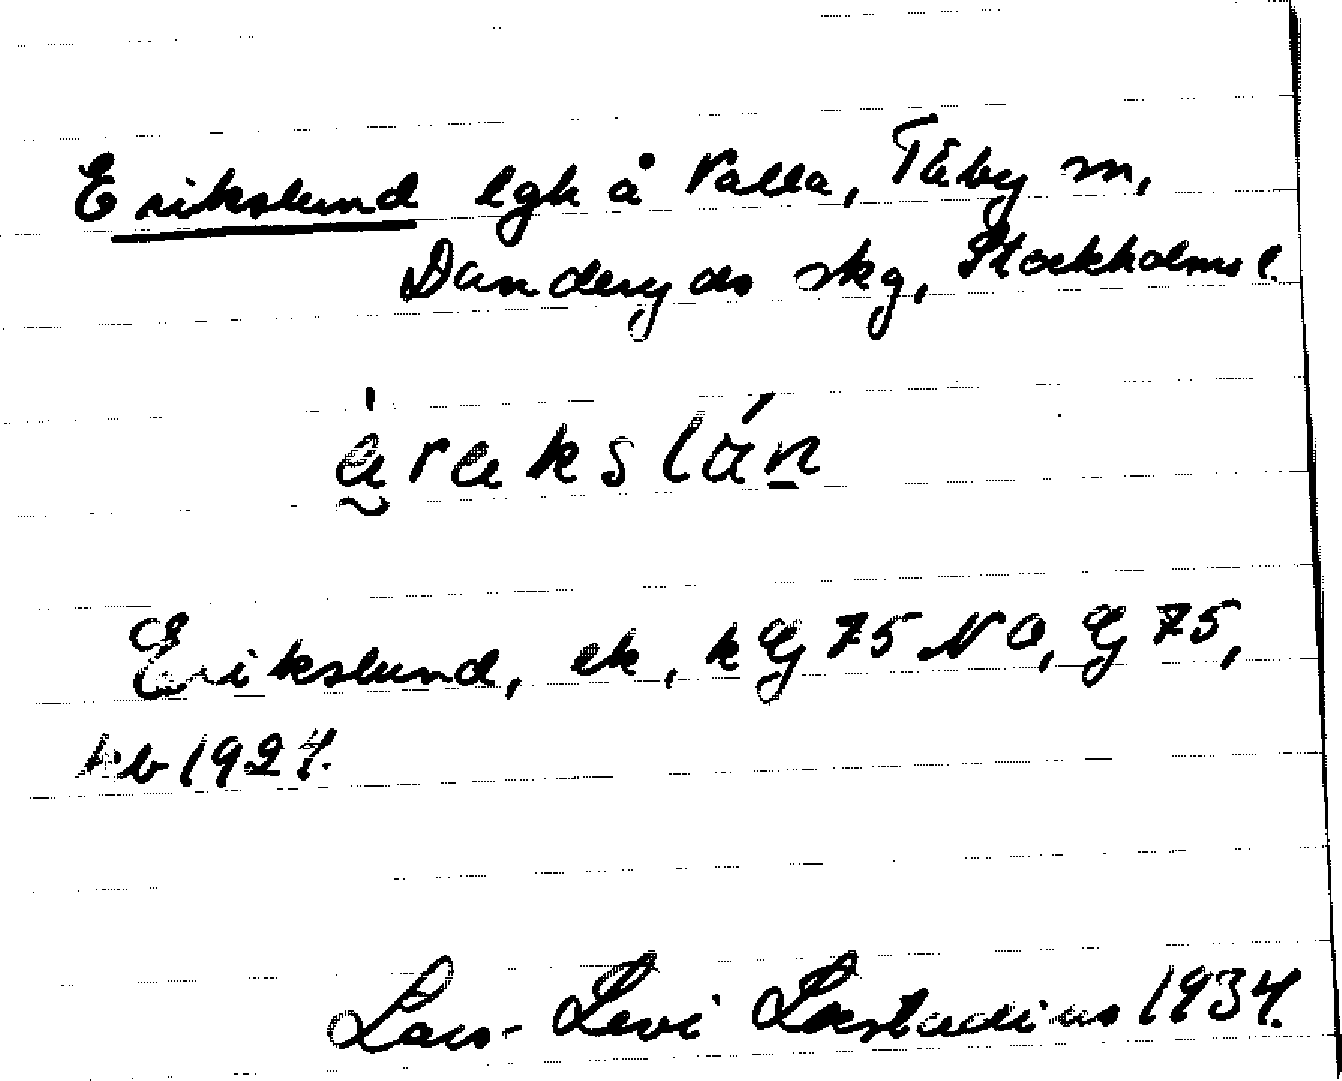 Erikslund lgh å Valla, Täby sn,
Danderyds skg, Stockholms l.
Erikslund, ek, k Ex 75 NO, Ex 75,
kb 1924.
Lars-Levi Læstadius 1934.